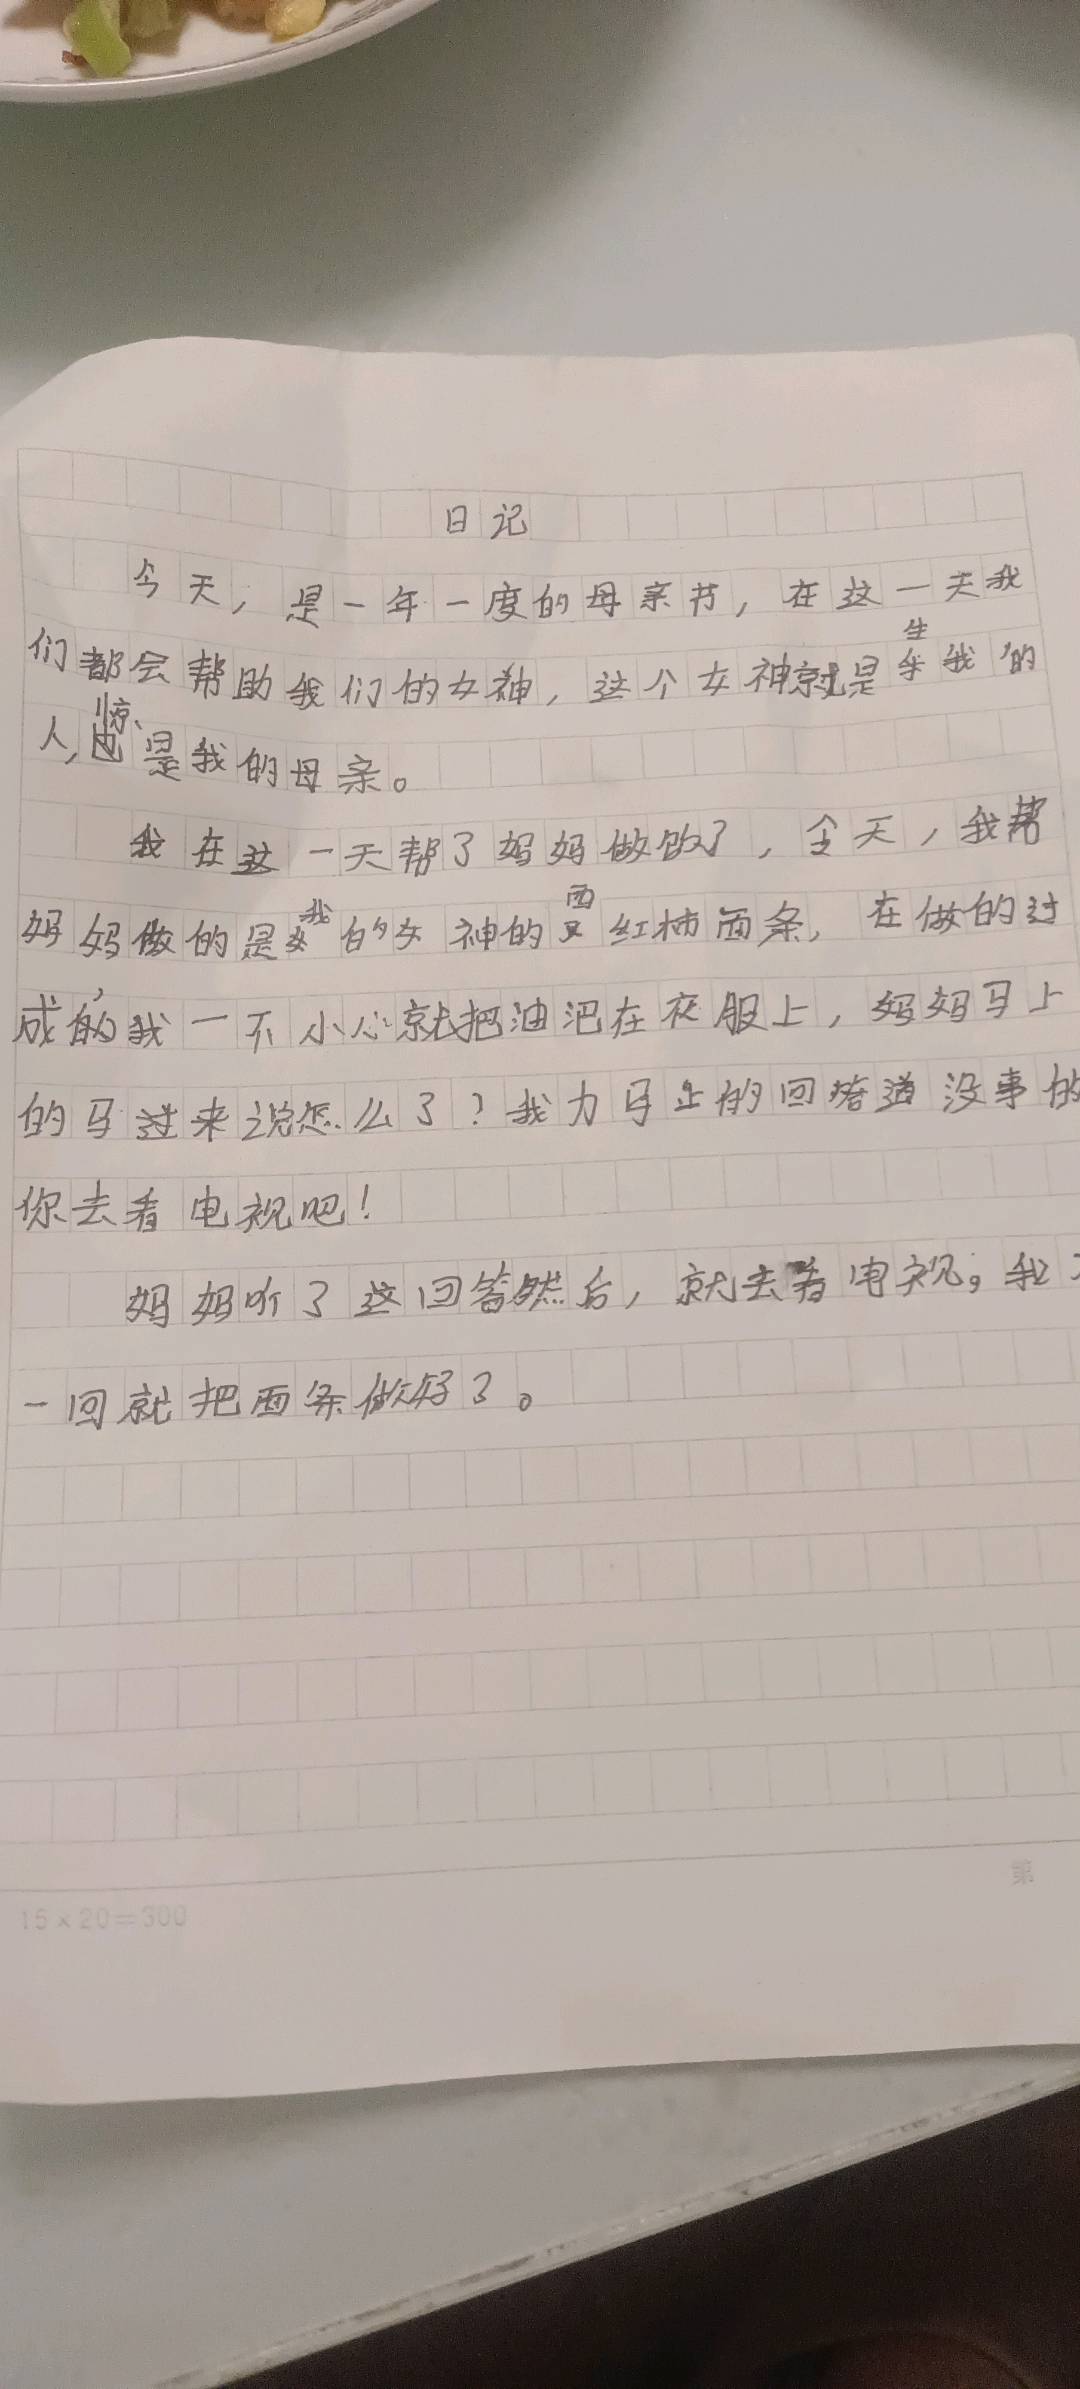 日记
今天，是一年一度的母亲节，在这一天我
们都会帮助我们的女神，这个女神就是生我的
人，也是我的母亲。
我在这一天帮了妈妈做饭了，今天，我帮
妈妈做的是我的女神的西红柿面条，在做的过
成的，我一不小心就把油洒在衣服上，妈妈马上
的马过来说怎么了？我力马上的回答道没事的
你去看电视吧！
妈妈听了这回答然后，就去看电视。我
一回就把面条做好了。
15×20=300
第